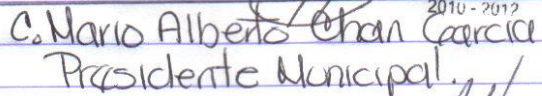 2010-2012
C. Mario Alberto Chan Garcia
Presidente Municipal.